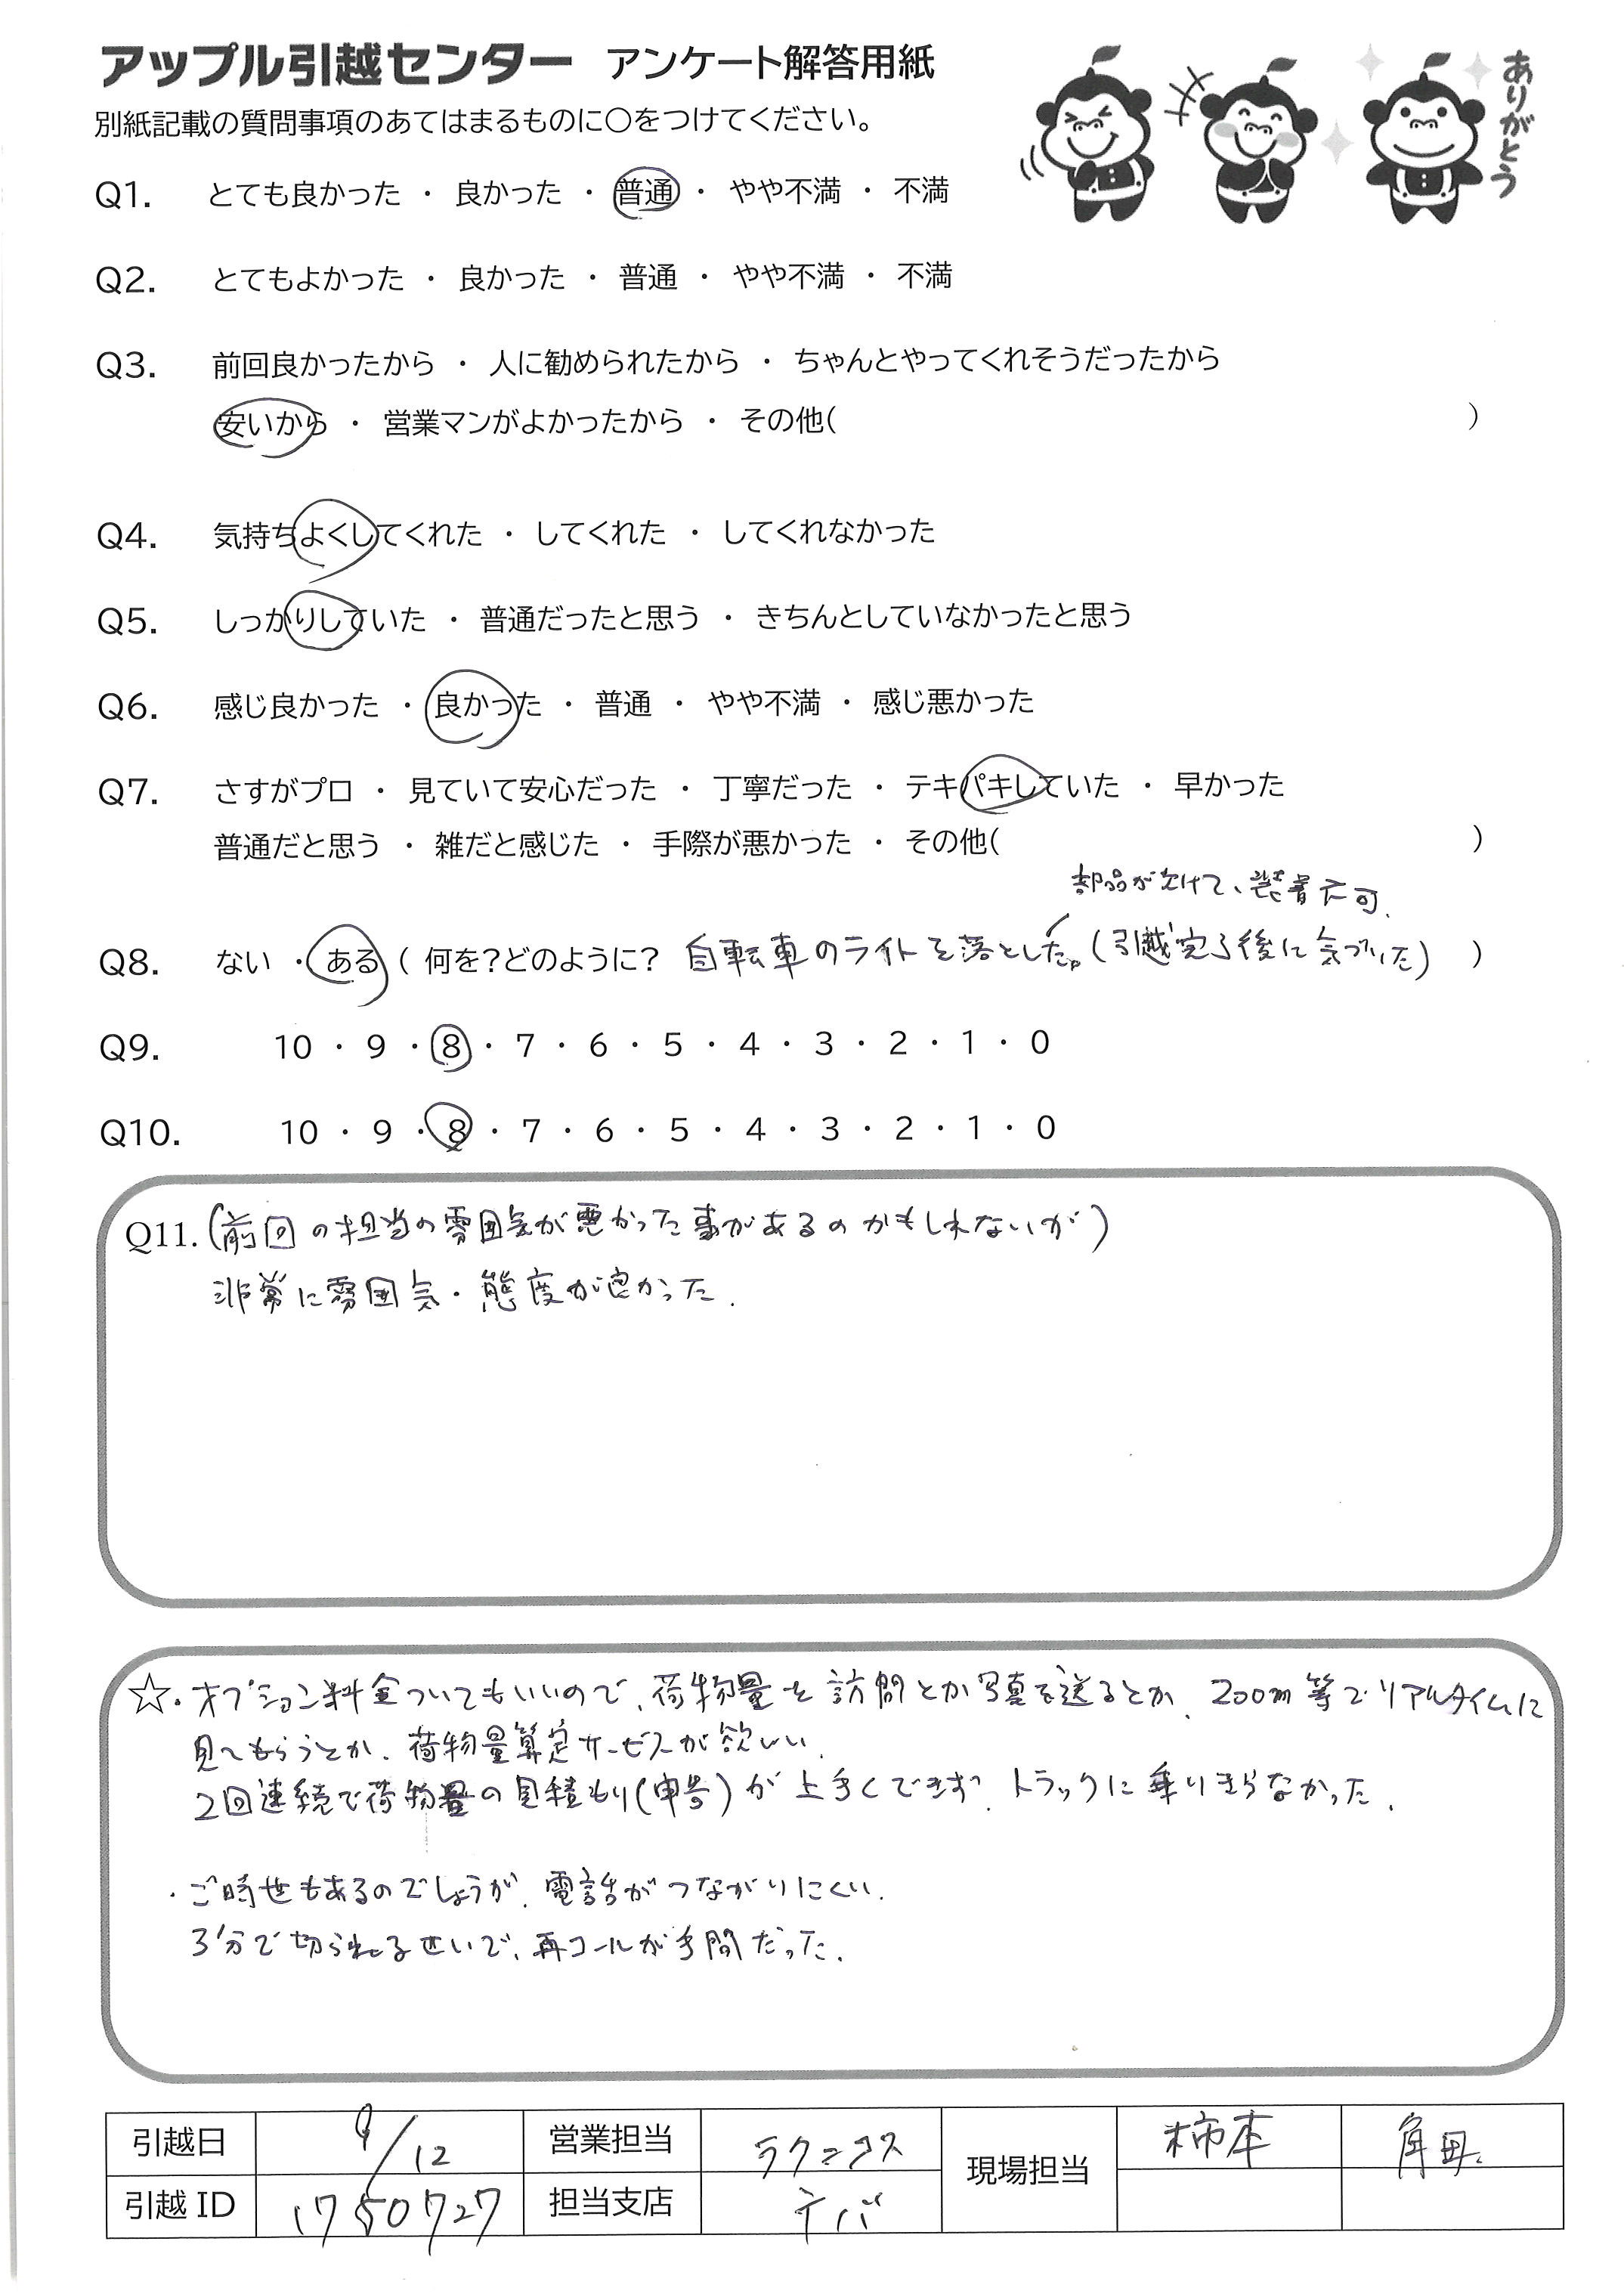 アップル引越センター アンケート解答用紙
ありがとう
別紙記載の質問事項のあてはまるものに〇をつけてください。
Q1. とても良かった ・ 良かった ・ 普通 ・ やや不満 ・ 不満
Q2. とてもよかった ・ 良かった ・ 普通 ・ やや不満 ・ 不満
Q3. 前回良かったから ・ 人に勧められたから ・ ちゃんとやってくれそうだったから
安いから ・ 営業マンがよかったから ・ その他( )
Q4. 気持ちよくしてくれた ・ してくれた ・ してくれなかった
Q5. しっかりしていた ・ 普通だったと思う ・ きちんとしていなかったと思う
Q6. 感じ良かった ・ 良かった ・ 普通 ・ やや不満 ・ 感じ悪かった
Q7. さすがプロ ・ 見ていて安心だった ・ 丁寧だった ・ テキパキしていた ・ 早かった
普通だと思う ・ 雑だと感じた ・ 手際が悪かった ・ その他( )
部品が欠けて、装着不可.
Q8. ない ・ ある ( 何を?どのように? 自転車のライトを落とした。(引越完了後に気づいた) )
Q9. 10 ・ 9 ・ 8 ・ 7 ・ 6 ・ 5 ・ 4 ・ 3 ・ 2 ・ 1 ・ 0
Q10. 10 ・ 9 ・ 8 ・ 7 ・ 6 ・ 5 ・ 4 ・ 3 ・ 2 ・ 1 ・ 0
Q11. (前回の担当の雰囲気が悪かった事があるのかもしれないが)
非常に雰囲気・態度が良かった.
☆・オプション料金ついてもいいので、荷物量を訪問とか写真を送るとか、zoom等でリアルタイムに
見てもらうとか、荷物量算定サービスが欲しい.
2回連続で荷物量の見積もり(申告)が上手くできず、トラックに乗りきらなかった.
・ご時世もあるのでしょうが、電話がつながりにくい.
3分で切られるせいで、再コールが手間だった.
引越日 9/12 営業担当 ラクニコス 現場担当 柿本
引越ID 1750727 担当支店 チバ